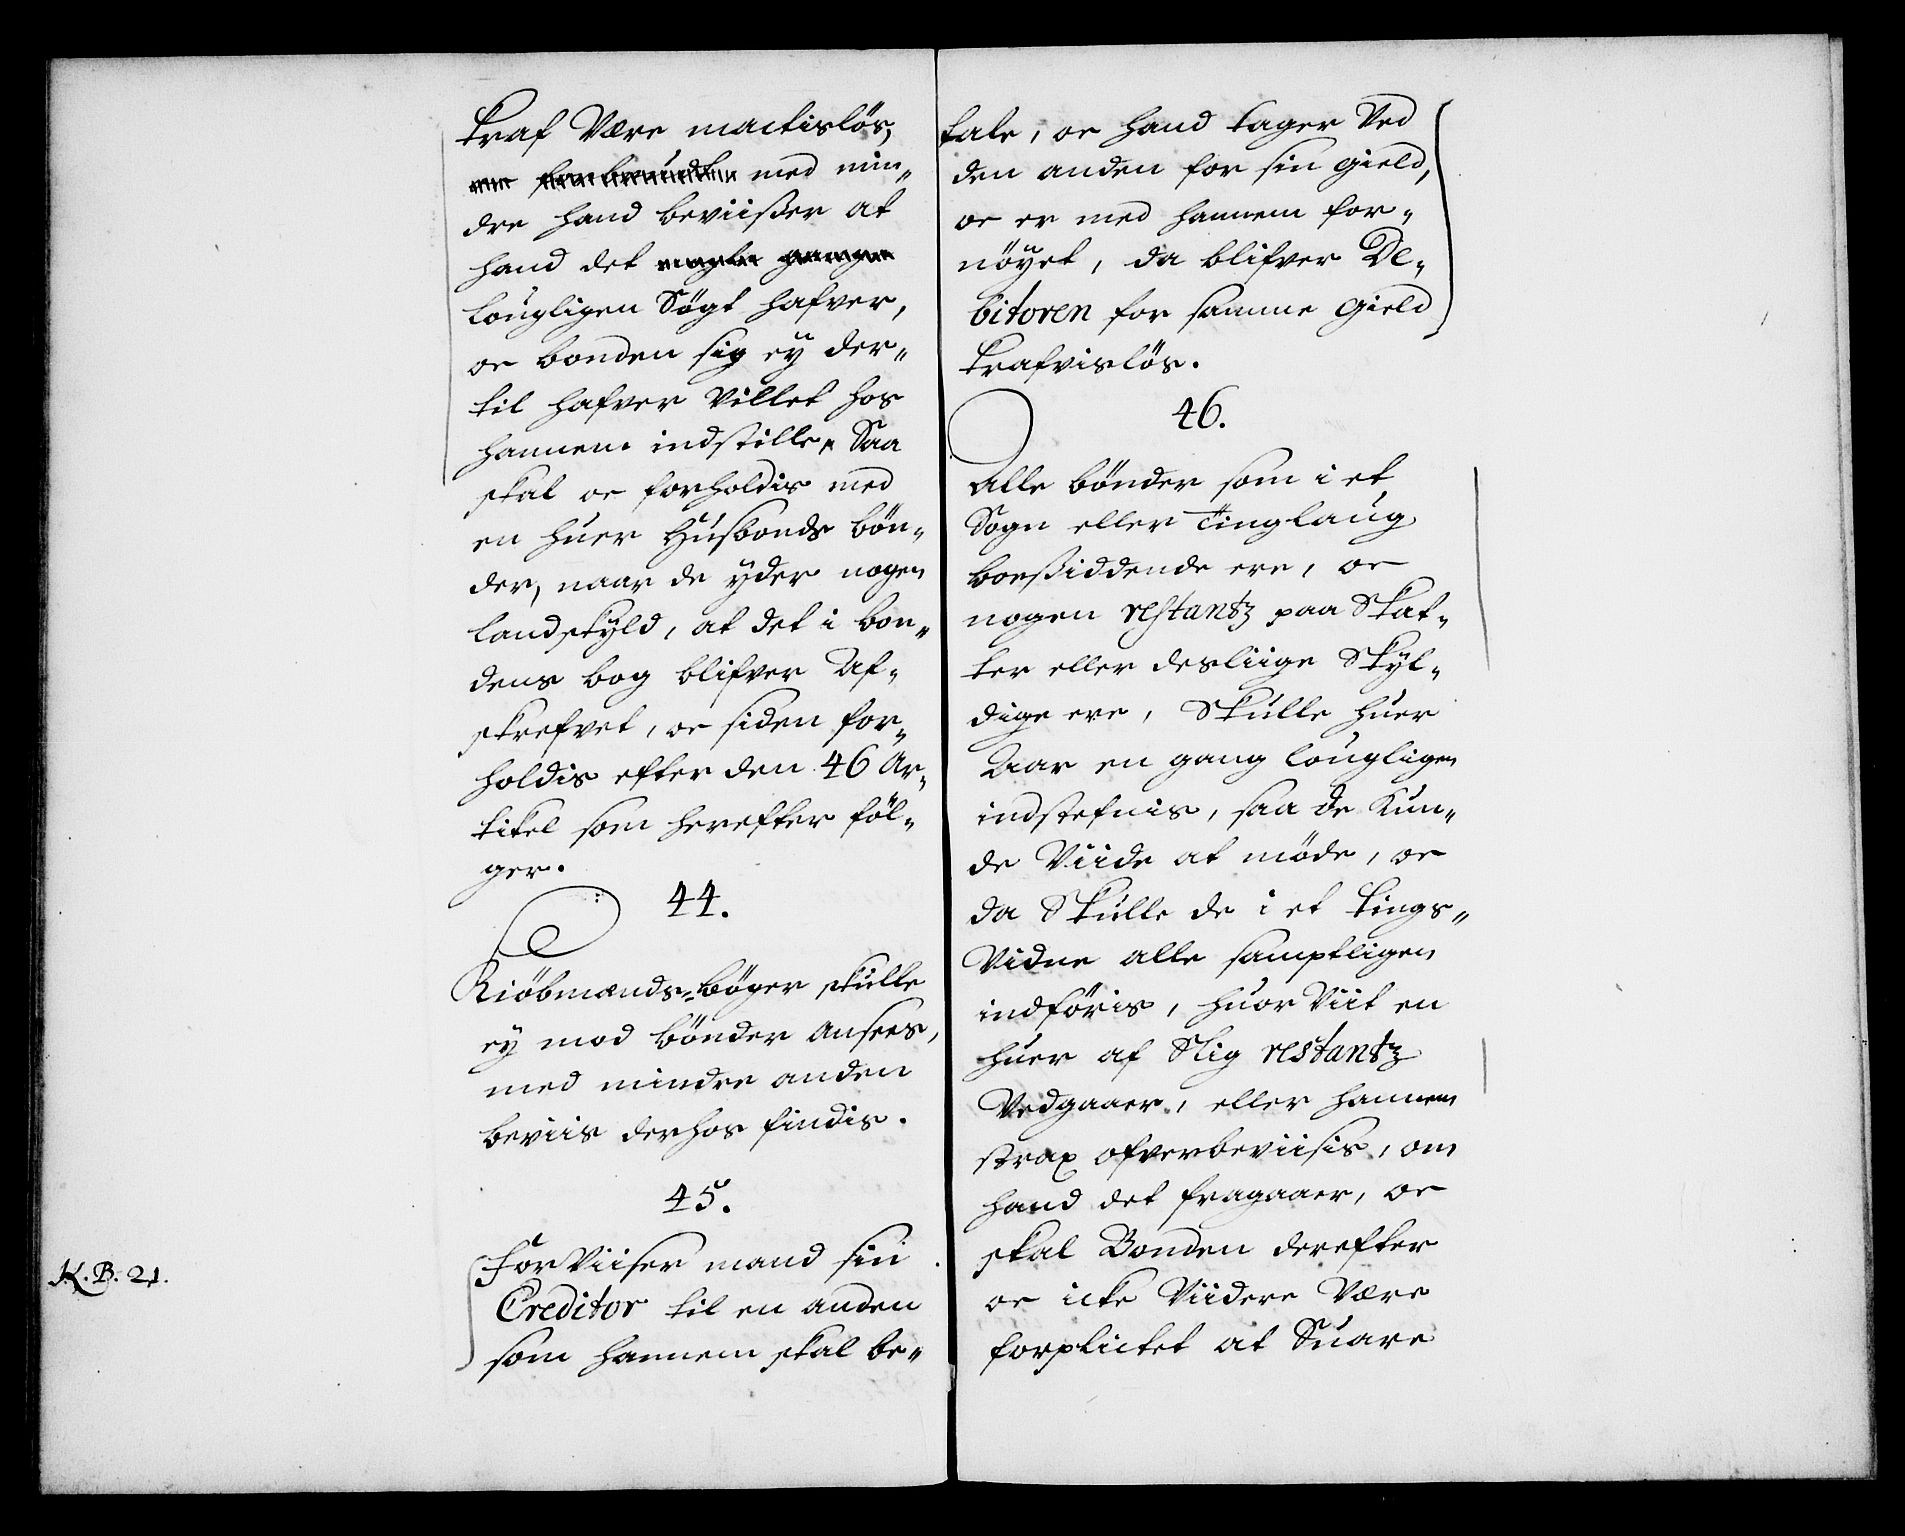 kraf være mactisløs,
med min„
dre hand beviißer at
hand det
lougligen søgt hafver,
oc bonden sig ey der„
til hafver villet hos
hannem indstille, Saa
skal oc forholdis med
en huer Husbonds bøn„
der, naar de yder nogen
landskyld, at det i bon„
dens bog blifver Af„
skrefvet, oc siden for„
holdis efter den 46 Ar„
tikel som herefter føl„
ger.
44.
Kiøbmænds-bøger skulle
ey mod bønder ansees,
med mindre anden
beviis derhos findis.
45.
Forviiser mand sin
K. B. 21.
Creditor til en anden
som hannem skal be„
tale, oc hand tager ved
den anden for sin gield,
oc er med hannem for„
nøyet, da blifver De„
bitoren for samme gield
krafvisløs.
46.
Alle bønder som i et
Sogn eller Tinglaug
boeßiddende ere, oc
nogen restantz paa Skat„
ter eller desliige Skyl„
dige ere, Skulle huer
Aar en gang lougligen
indstefnis, saa de kun„
de viide at møde, oc
da Skulle de i et tings„
vidne alle samptligen
indføris, huor viit en
huer af Slig restantz
vedgaaer, eller hannem
strax ofverbeviisis, om
hand det fragaaer, oc
skal Bonden derefter
oc icke viidere være
forplictet at Suare